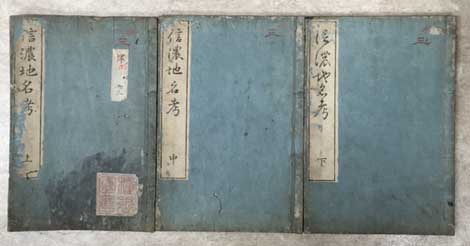 信濃地名考
上
信濃地名考
中
三
信濃地名考
下
三